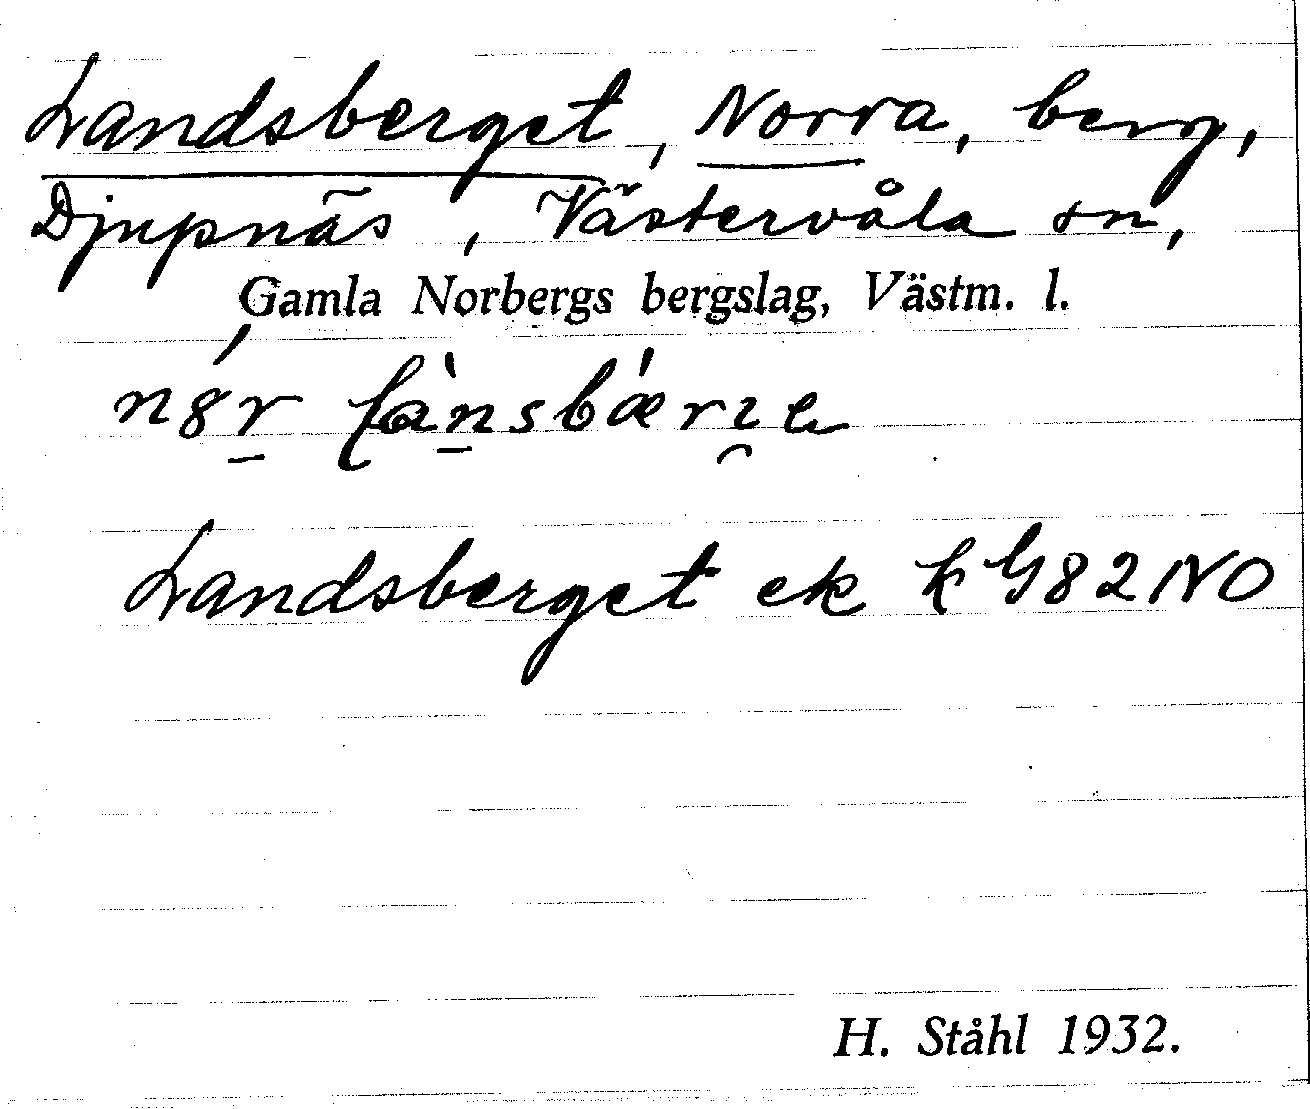 Landsberget, Norra, berg,
Djupnäs, Västervåla sn,
Gamla Norbergs bergslag, Västm. l.
Landsberget ek k G82NO
H. Ståhl 1932.